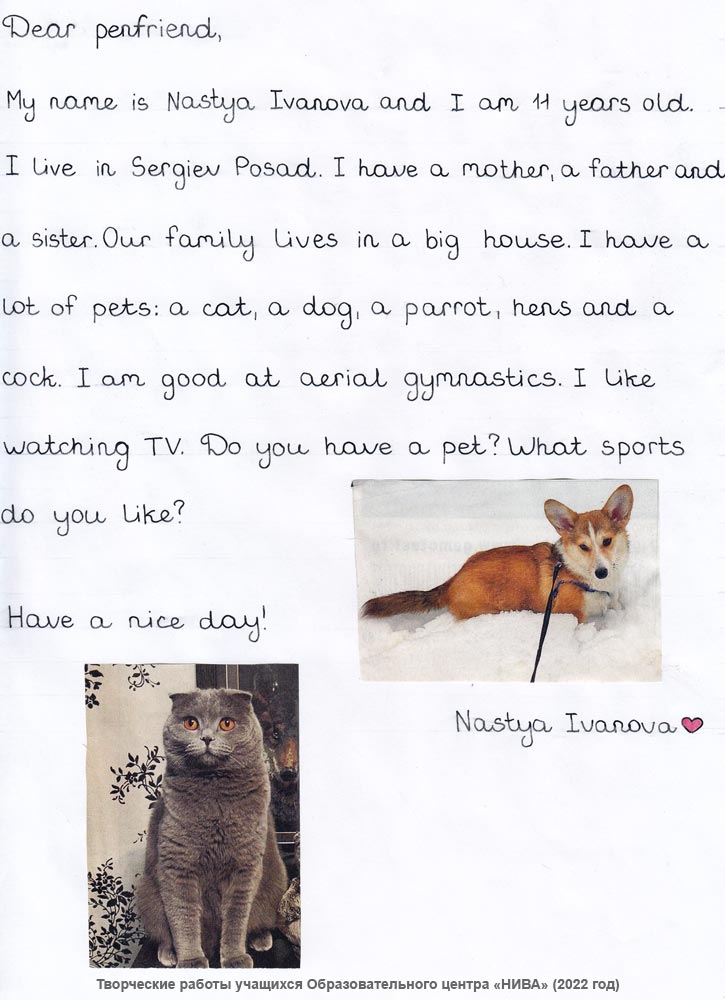 Dear penfriend,
My name is Nastya Ivanova and I am 11 years old.
I live in Sergiev Posad. I have a mother, a father and
a sister. Our family lives in a big house. I have a
lot of pets: a cat, a dog, a parrot, hens and a
cock. I am good at aerial gymnastics. I like
watching TV. Do you have a pet? What sports
do you like?
Have a nice day!
Nastya Ivanova
Творческие работы учащихся Образовательного центра «НИВА» (2022 год)